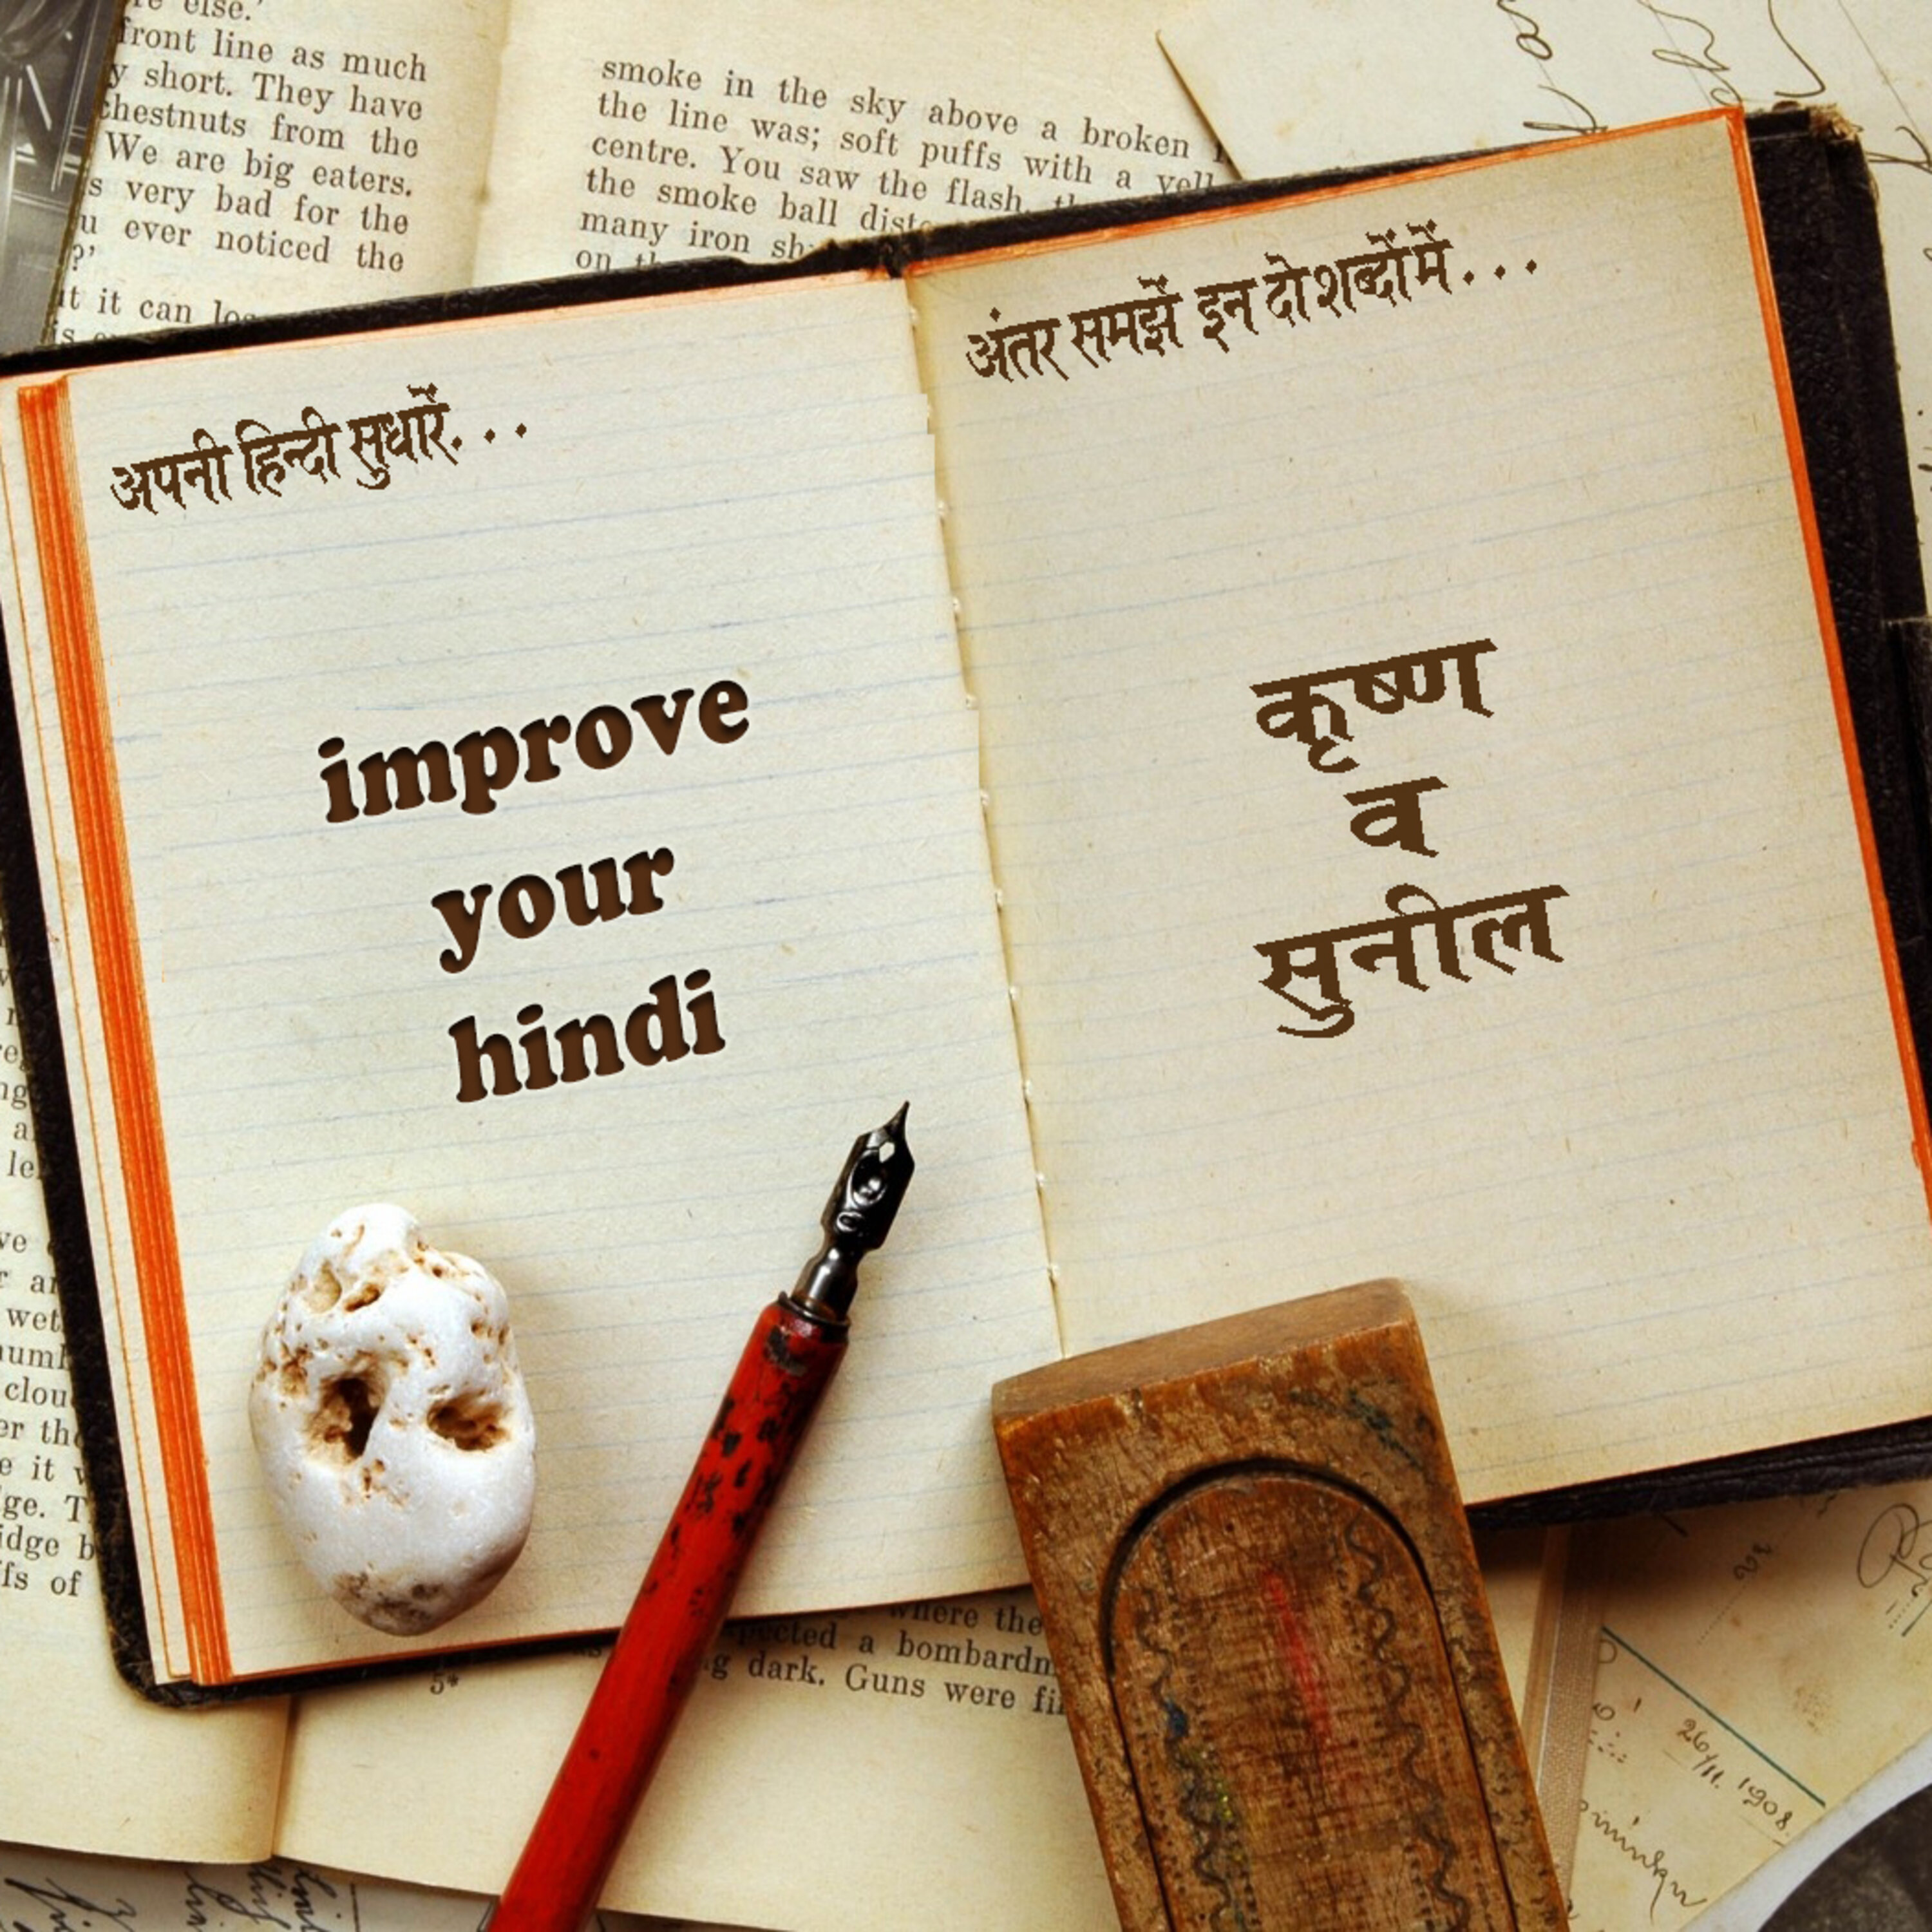 re else.'
front line as much
y short. They have
chestnuts from the
We are big eaters.
s very bad for the
u ever noticed the
?'
it it can
smoke in the sky above a broken
the line was; soft puffs with a
centre. You saw the flash,
the smoke ball
many iron
on
अपनी हिन्दी सुधारें...
improve
your
hindi
अंतर समझें इन दो शब्दों में...
कृष्ण
व
सुनील
wet
er
e it
ge. T
idge b
fs of
where the
a bombardm
g dark. Guns were
5*
26/11. 1908.